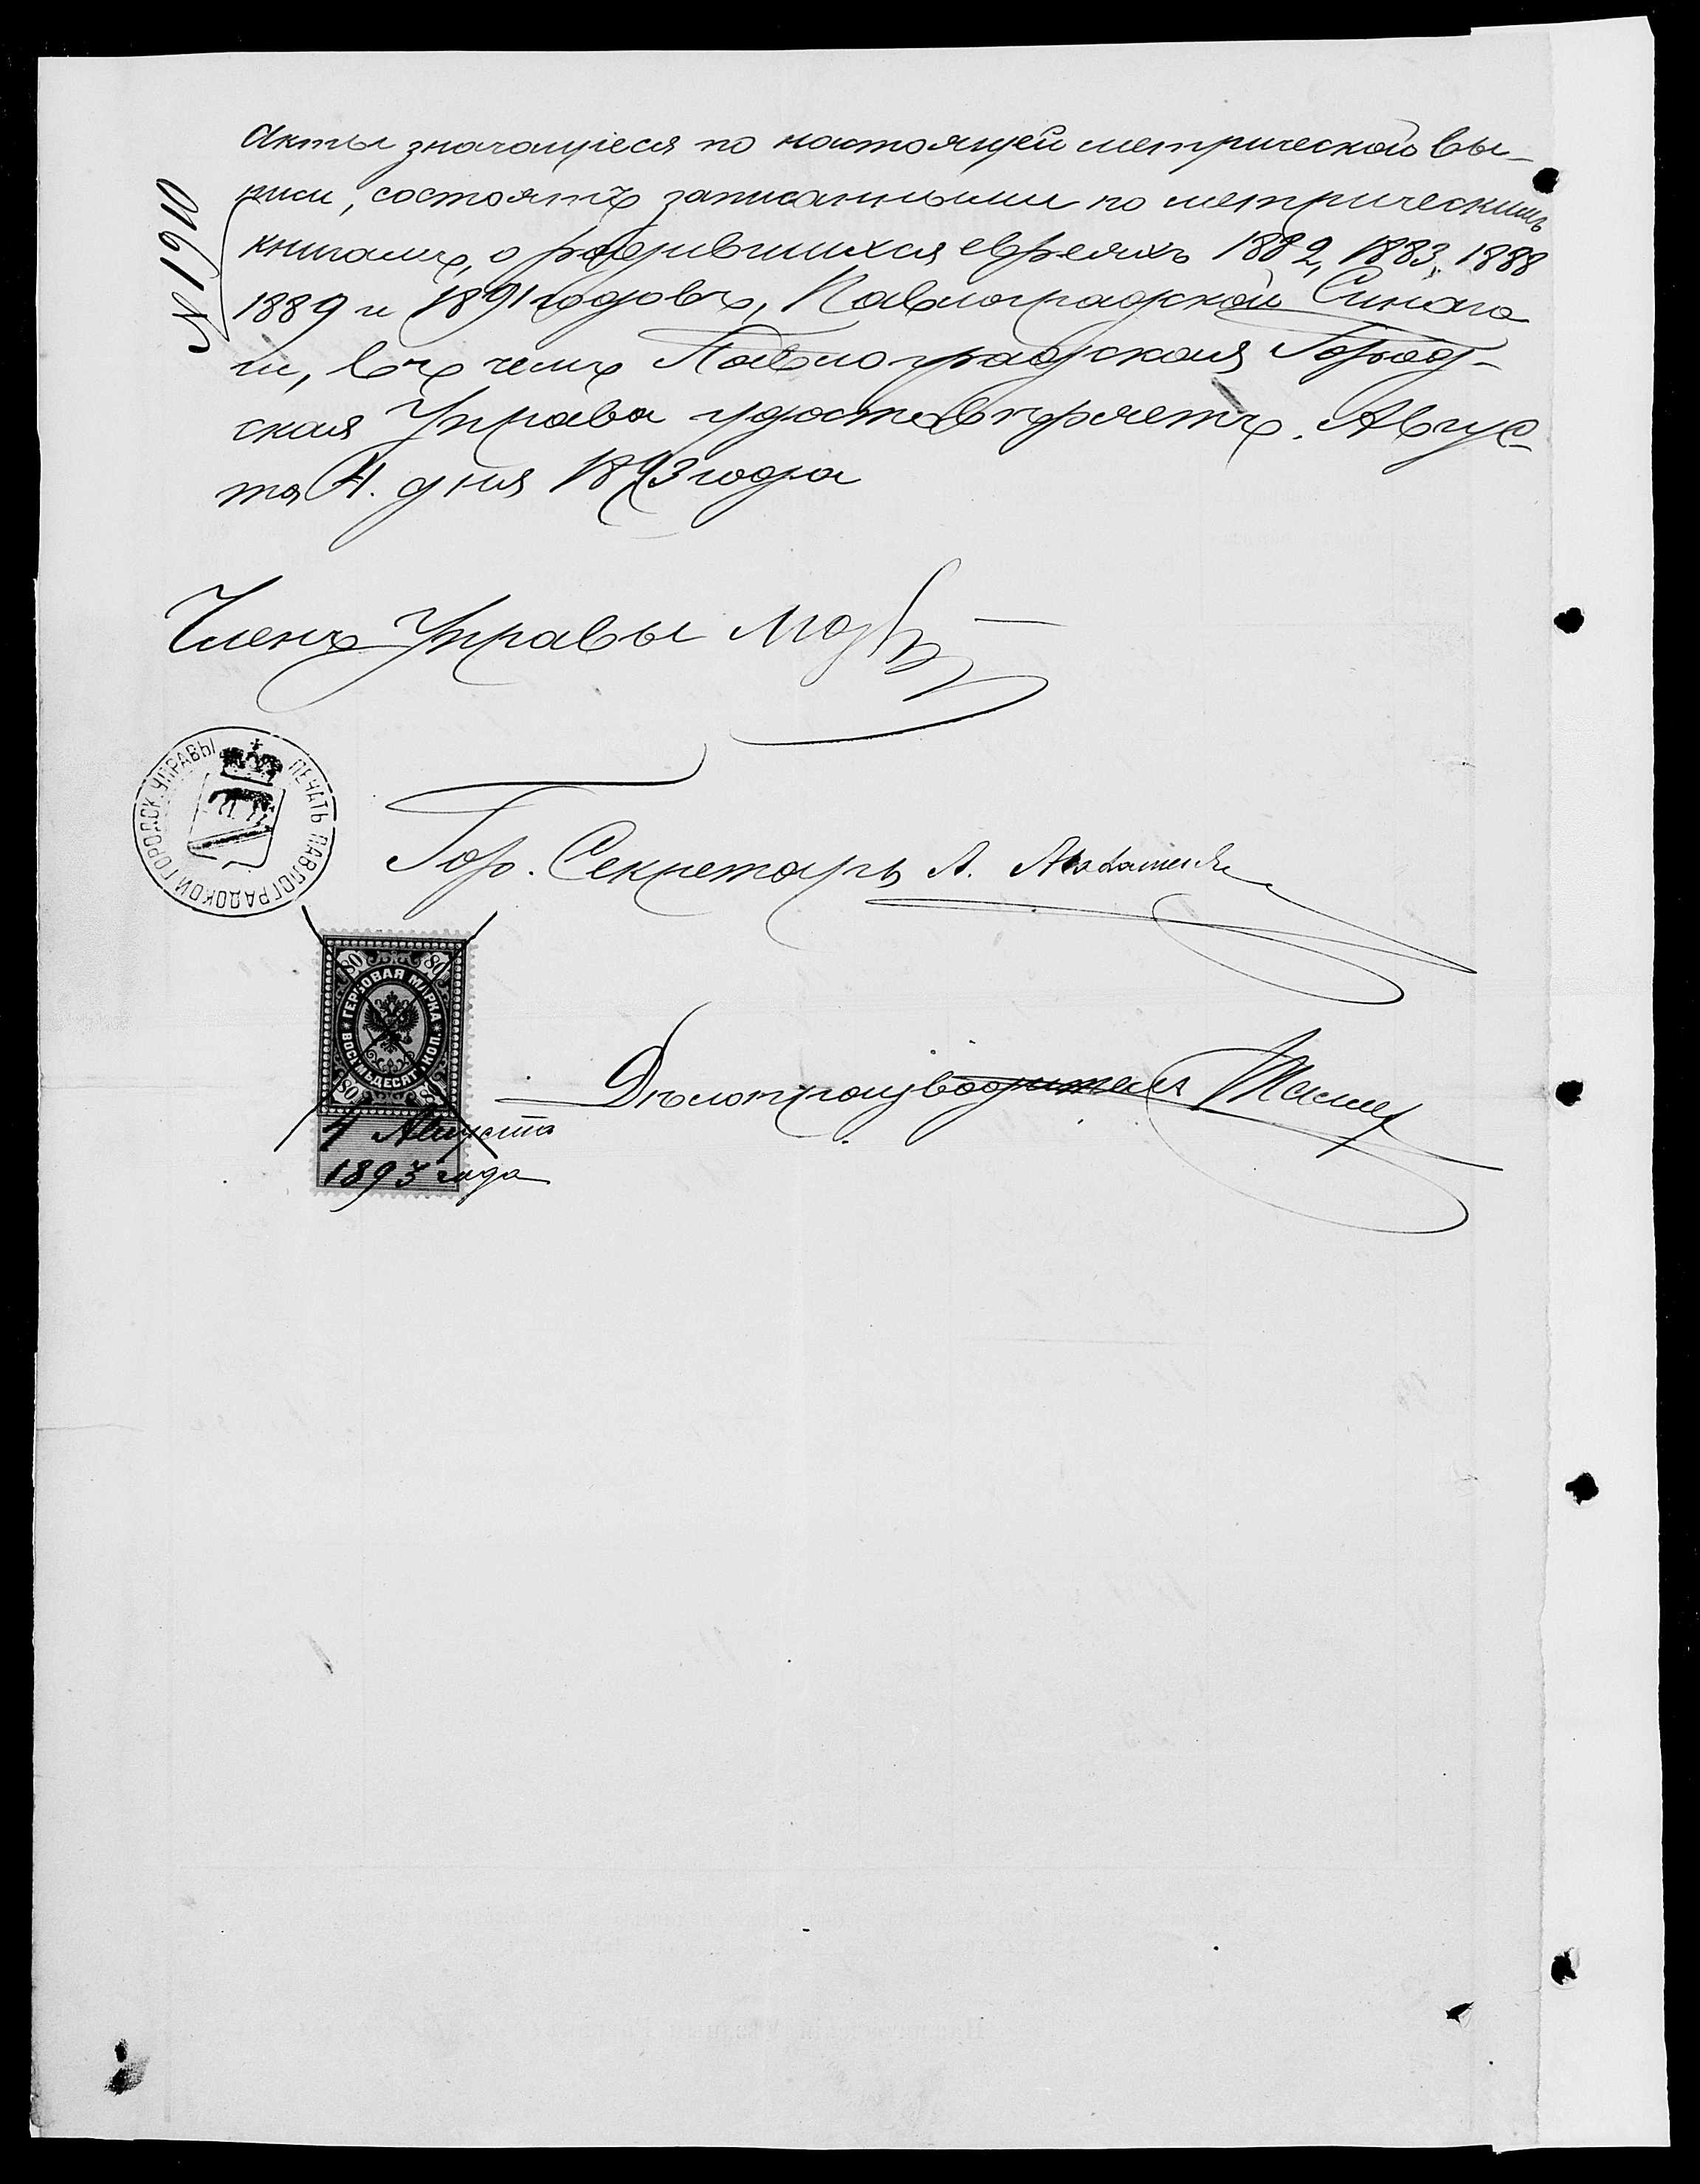 № 1910
Акты значащіеся по настоящей метрической вы-
писи, состоятъ записанными по метрическимъ
книгамъ, о родившихся евреяхъ 1882, 1883, 1888
1889 и 1891 годовъ, Павлоградской Синаго
ги, въ чемъ Павлоградская Город-
ская Управа удостовѣряетъ. Авгус-
та 4. дня 1893 года
Членъ Управы
ПЕЧАТЬ ПАВЛОГРАДСКОЙ ГОРОДСК. УПРАВЫ
Гор. Секретарь А.
80 80
ГЕРБОВАЯ МАРКА
ВОСЕМЬДЕСЯТ КОП.
80 80
Дѣлопроизводитель
4 Августа
1893 года